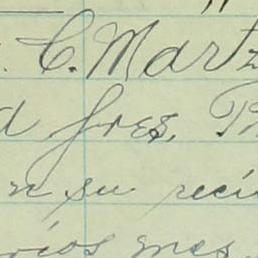 . C. Märtz
a fres. Th
n su reci
rios mes